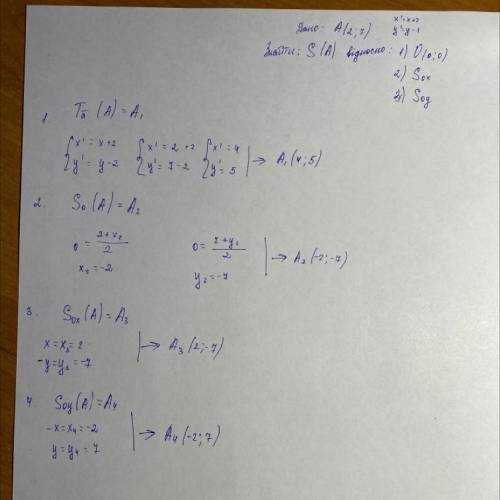 Дано: A(2;7) x'=x+2
y'=y-1
Знайти: S(A) відносно: 1) O(0;0)
2) Sox
3) Soy
1 Tā (A) = A₁
{x' = x+2 {x' = 2+2 {x' = 4
{y' = y-2 {y' = 7-2 {y' = 5 | → A₁(4;5)
2. S₀(A) = A₂
0 = (2+x₂)/2 0 = (7+y₂)/2 | → A₂(-2;-7)
x₂ = -2 y₂ = -7
3. Sox(A) = A₃
x = x₃ = 2 | → A₃(2;-7)
-y = y₃ = -7
4. Soy(A) = A₄
-x = x₄ = -2 | → A₄(-2;7)
y = y₄ = 7